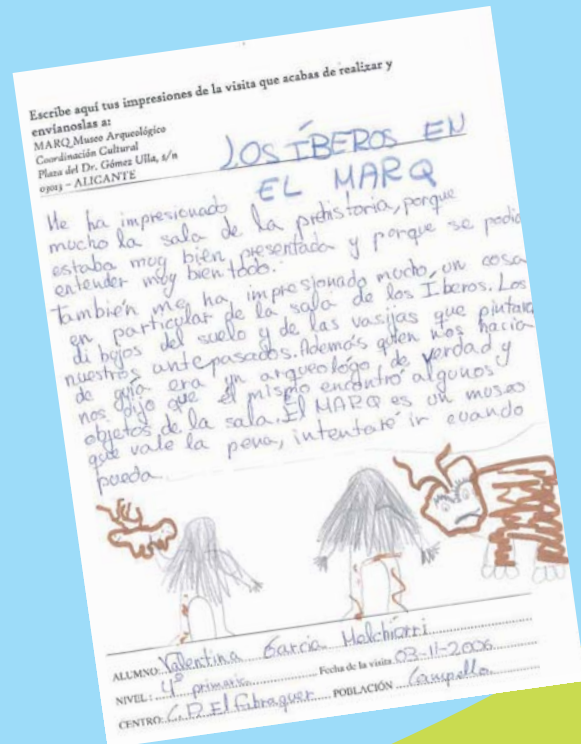 Escribe aquí tus impresiones de la visita que acabas de realizar y
envíanoslas a:
MARQ Museo Arqueológico
Coordinación Cultural
Plaza del Dr. Gómez Ulla, s/n
03013 – ALICANTE
LOS ÍBEROS EN
EL MARQ
Me ha impresionado
mucho la sala de la prehistoria, porque
estaba muy bien presentada y porque se podia
entender muy bien todo.
también me ha impresionado mucho, un cosa
en particular de la sala de los Iberos. Los
dibojos del suelo y de las vasijas que pintaba
nuestros antepasados. Además quien nos hacia
de guía era un arqueologo de verdad y
nos dijo que el mismo encontró algunos
objetos de la sala. El MARQ es un museo
que vale la pena, intentaré ir cuando
pueda.
ALUMNO: Valentina Garcia Melchiorri
NIVEL: 4º primaria Fecha de la visita 03-11-2006
CENTRO: C.P. El Fabraquer POBLACIÓN Campello